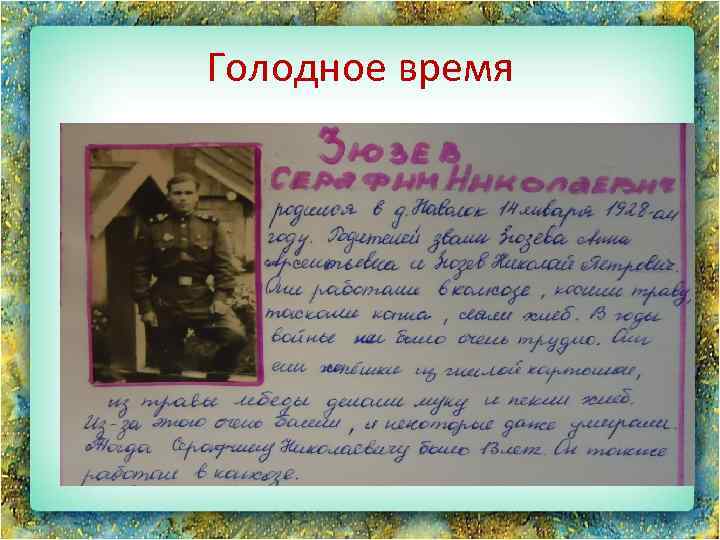 Голодное время
Зюзев
Серафим Николаевич
родился в д. Наволок 14 января 1928-ом
году. Родителей звали Зюзева Анна
Арсентьевна и Зюзев Николай Петрович.
Они работали в колхозе, косили траву,
таскали копна, сеяли хлеб. В годы
войны им было очень трудно. Они
ели лепёшки из гнилой картошки,
из травы лебеды делали муку и пекли хлеб.
Из-за этого очень болели, и некоторые даже умирали.
Тогда Серафиму Николаевичу было 13 лет. Он также
работал в колхозе.